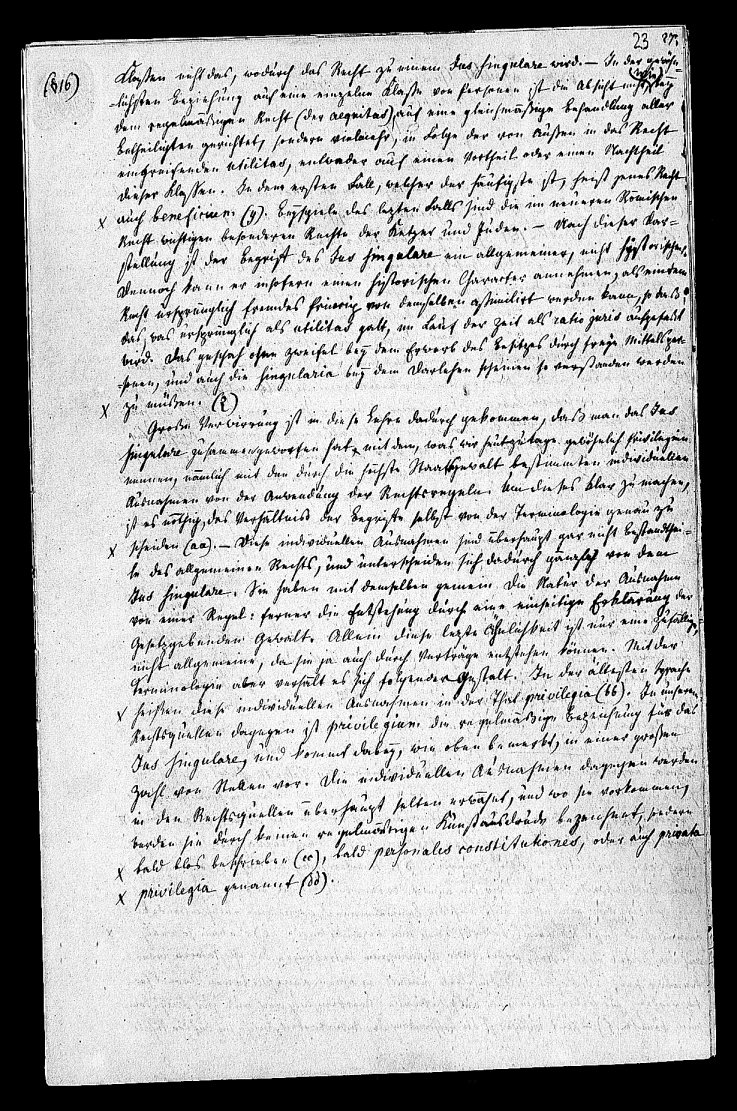 23 27.
(§16)
Klassen nicht das, wodurch das Recht zu einem Jus singulare wird. – In der gewöhn-
lichsten Beziehung auf eine einzelne Klasse von Personen ist die Absicht nicht, wie bey
dem regelmäßigen Recht (der aequitas) auf eine gleichmäßige Behandlung aller
Betheiligten gerichtet, sondern vielmehr, in Folge der von Außen in das Recht
eingreifenden utilitas, entweder auf einen Vortheil oder einen Nachtheil
dieser Klassen. In dem ersten Fall, welcher der häufigste ist, heißt jenes Recht
x auch beneficium (y). Beyspiele des letzten Falls sind die im neueren Römischen
Recht wichtigen besonderen Rechte der Ketzer und Juden. – Nach dieser Dar-
stellung ist der Begriff des Jus singulare ein allgemeiner, nicht historischer.
Dennoch kann er insofern einen historischen Character annehmen, als ein dem
Recht ursprünglich fremdes Princip von demselben assimilirt werden kann, so daß
das, was ursprünglich als utilitas galt, im Lauf der Zeit als ratio juris aufgefaßt
wird. Das geschah ohne Zweifel bey dem Erwerb des Besitzes durch freye Mittelsper-
sonen, und auch die singularia bey dem Darlehen scheinen so verstanden werden
x zu müssen. (z)
Große Verwirrung ist in diese Lehre dadurch gekommen, daß man das Jus
singulare zusammengeworfen hat mit dem, was wir heutzutage gewöhnlich Privilegien
nennen, nämlich mit den durch die höchste Staatsgewalt bestimmten individuellen
Ausnahmen von der Anwendung der Rechtsregeln. Um dieses klar zu machen,
ist es nöthig, das Verhältniß der Begriffe selbst von der Terminologie genau zu
x scheiden (aa). – Diese individuellen Ausnahmen sind überhaupt gar nicht Bestandthei-
le des allgemeinen Rechts, und unterscheiden sich dadurch gänzlich von dem
Jus singulare. Sie haben mit demselben gemein die Natur der Ausnahme
von einer Regel: ferner die Entstehung durch eine einseitige Erklärung der
Gesetzgebenden Gewalt. Allein diese letzte Ähnlichkeit ist nur eine zufällige,
nicht allgemeine, da sie ja auch durch Verträge entstehen können. Mit der
Terminologie aber verhält es sich folgender Gestalt. In der ältesten Sprache
x heißen diese individuellen Ausnahmen in der That privilegia (bb). In unseren
Rechtsquellen dagegen ist privilegium die regelmäßige Bezeichnung für das
Jus singulare, und kommt dabey, wie oben bemerkt, in einer großen
Zahl von Stellen vor. Die individuellen Ausnahmen dagegen werden
in den Rechtsquellen überhaupt selten erwähnt, und wo sie vorkommen,
werden sie durch keinen regelmäßigen Kunstausdruck bezeichnet, sondern
x bald blos beschrieben (cc), bald personales constitutiones, oder auch privata
x privilegia genannt (dd).